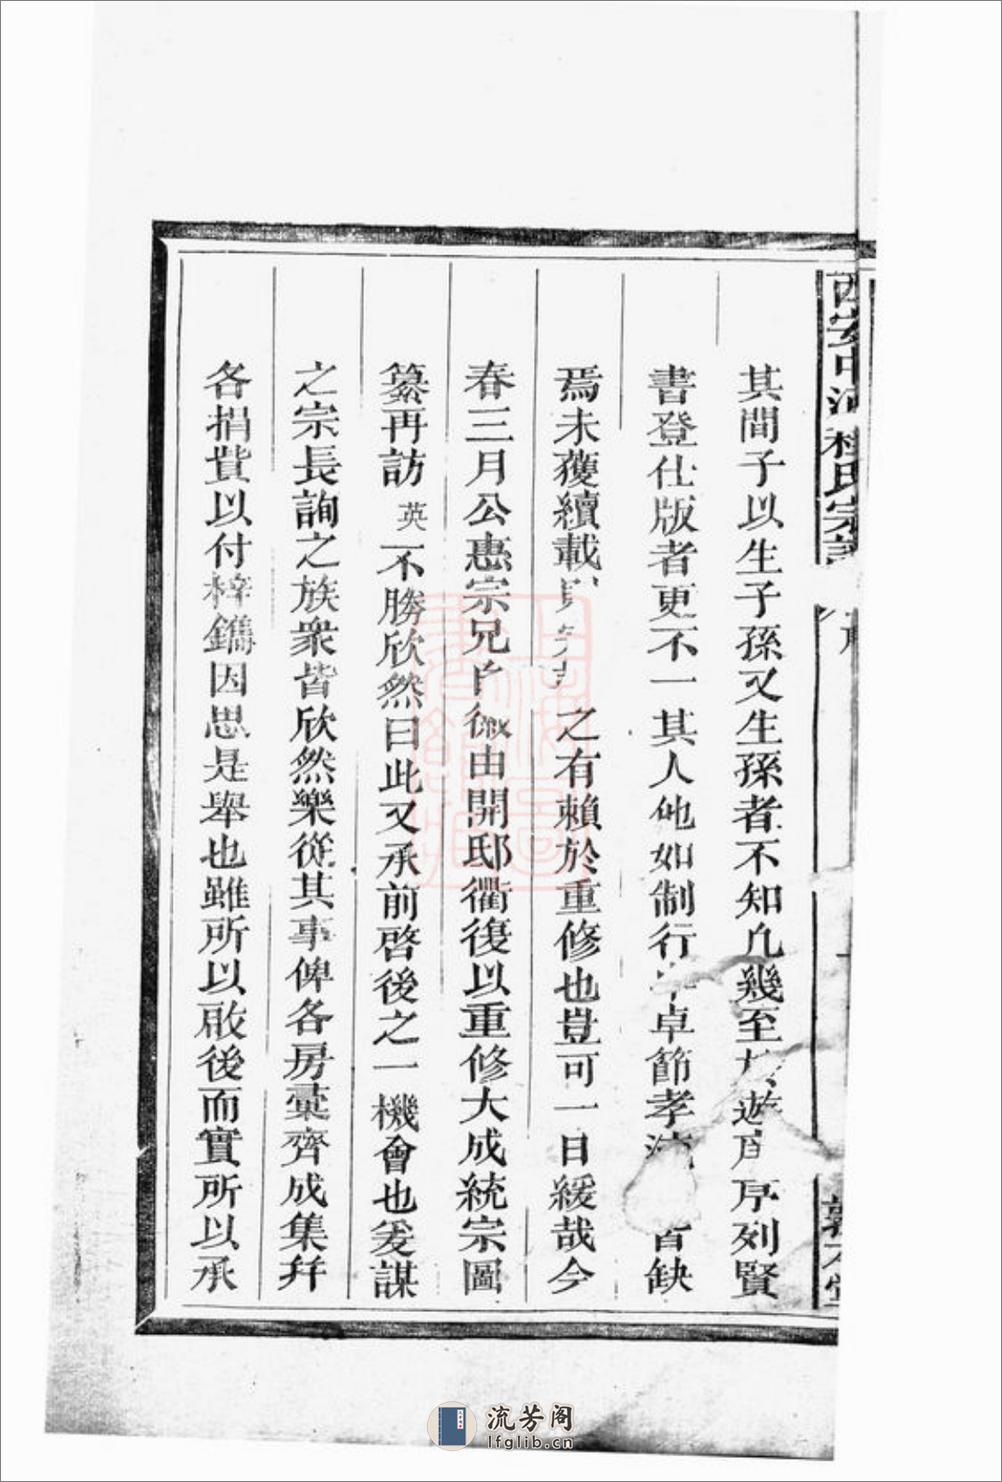 其間子以生子孫又生孫者不知凡幾至於遊庠序列賢
書登仕版者更不一其人他如制行卓節孝皆缺
焉未獲續載之有賴於重修也豈可一日緩哉今
春三月公惠宗兄自徽由開邸衢復以重修大成統宗圖
纂再訪英不勝欣然曰此又承前啓後之一機會也爰謀
之宗長詢之族衆皆欣然樂從其事俾各房彙齊成集幷
各捐貲以付梓鐫因思是舉也雖所以啟後而實所以承
西安中河杜氏宗譜
流芳阁
lfglib.cn